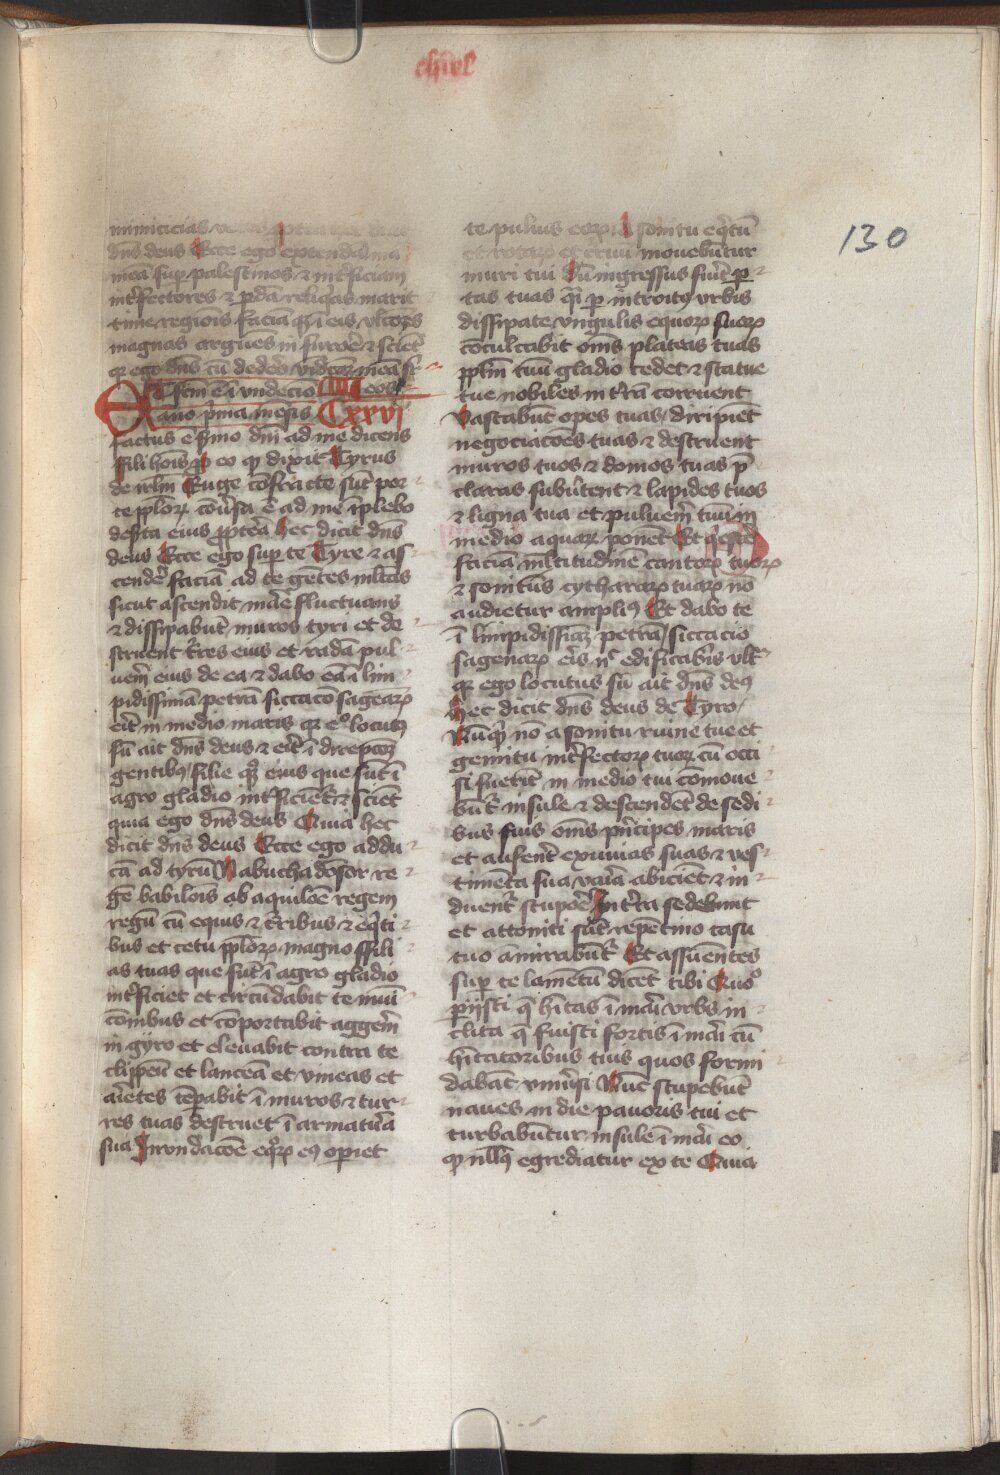 chiel
130
inimicicias
dn̄s deus Ecce ego extendā ma
meā sup̄ palestinos ⁊ int̄ficiam
int̄fectores ⁊ p̄dā reliq̄as marit
time regiois faciā q̄ȝ ī eis vltoēs
magnas argūes in furoē ⁊ sciēt
qr ego dn̄s cū dedero vīdctaȝ meā sr̄
Et fcm̄ ē ī vndecīo eos
āno p̄ma mēsis Cxxvi
factus ē s̄mo dn̄i ad me dicens
ffili hoīs p̄ eo qp dixit Tyrus
de irlm̄ Euge cōfracte sūt por
te pplōꝝ cōūsa ē ad me īplebo
des̄ta eius p̄pteā hec dicit dn̄s
deus Ecce ego sup̄ te Tyre ⁊ as
cendē faciā ad te gētes ml̄tas
sicut ascendit māe fluctuans
⁊ dissipabūt muros tyri et de
struent t̄res eius et radā pul
uem̄ eius de ea ⁊ dabo eā ī lim
pidissimā petrā siccacō sagēaꝝ
eīt in medio maris qr eº locutꝰ
sū ait dn̄s deus ⁊ eīt ī direpcōȝ
gentibꝰ filie qȝ eius que sūt ī
agro gladio int̄ficiēt̄ ⁊ sciēt
quia ego dn̄s deus Quia hec
dicit dn̄s deus Ecce ego addu
cā ad tyrū Nabuchadōsor re
gē babilōis ab aquilōe regem
regū cū equis ⁊ t̄ribus ⁊ eq̄ti
bus et cetu pplōꝝ magno ffili
as tuas que sūt ī agro gladio
int̄ficiet et circūdabit te mūi
cōnibus et cōportabit aggem̄
in gyro et eleuabit contra te
clippeū et lanceā et vineas et
aīetes tēpabit ī muros ⁊ tur
res tuas destruet ī armatūa
sua Inrondacōe eq̄oꝝ eꝰ operiet
te puluis eoꝝ A sonitu eq̄tū
et rotaꝝ et cruū mouebuntur
muri tui dū ingressus fūit p̄
tas tuas q̄i p̄ introitꝰ vrbis
dissipate vngulis equoꝝ suoꝝ
cōculcabit om̄s plateas tuas
pplm̄ tuū gladio cedet ⁊ statue
tue nobiles in t̄rā corruent
Vastabūt opes tuas diripiēt
negociacōes tuas ⁊ destruent
muros tuos ⁊ domos tuas p̄
claras subūtent ⁊ lapides tuos
⁊ ligna tua et puluem̄ tuū in
medio aquaꝝ ponēt Et q̄escē
faciā ml̄titudinē cantoꝝ tuoꝝ
⁊ sonitus cytharaꝝ tuaꝝ nō
audietur amplꝰ Et dabo te
ī limpidissīaȝ petrā siccacio
sagenaꝝ eīs nᶜ edificabīs vlt̄
qr ego locutus sū ait dn̄s deꝰ
Hec dicit dn̄s deus de Tyro
Nūq̄d nō a sonitu ruine tue et
gemitu int̄fectoꝝ tuoꝝ cū occi
si fuerīt in medio tui cōmoue
būt̄ insule ⁊ descendēt de sedi
bus suis om̄s pn̄cipes maris
et aufent̄ exuuias suas ⁊ ves
timēta sua vaīa abiciēt ⁊ in
duent̄ stupōē In t̄ra sedebunt
et attoniti sūt repentino casu
tuo āmirabūt̄ Et assūentes
sup̄ te lamētū dicēt tibi Quoº
p̄ijsti q̄ hītas ī māi vrbs in
clita q̄ fuisti fortis ī māi cū
hītatoribus tuis quos formi
dabāt vniūsi Nūc stupebūt
naues in die pauoris tui et
turbabūtur insule ī māi eo
qp nllꝰ egrediatur ex te Quia